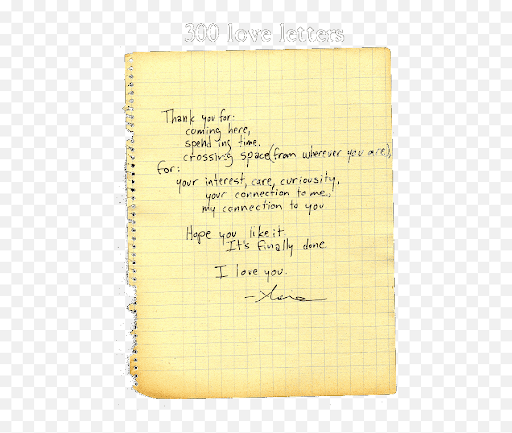 300 love letters
Thank you for:
coming here,
spending time.
crossing space (from wherever you are),
for:
your interest, care, curiousity,
your connection to me,
my connection to you
Hope you like it.
It's finally done
I love you.